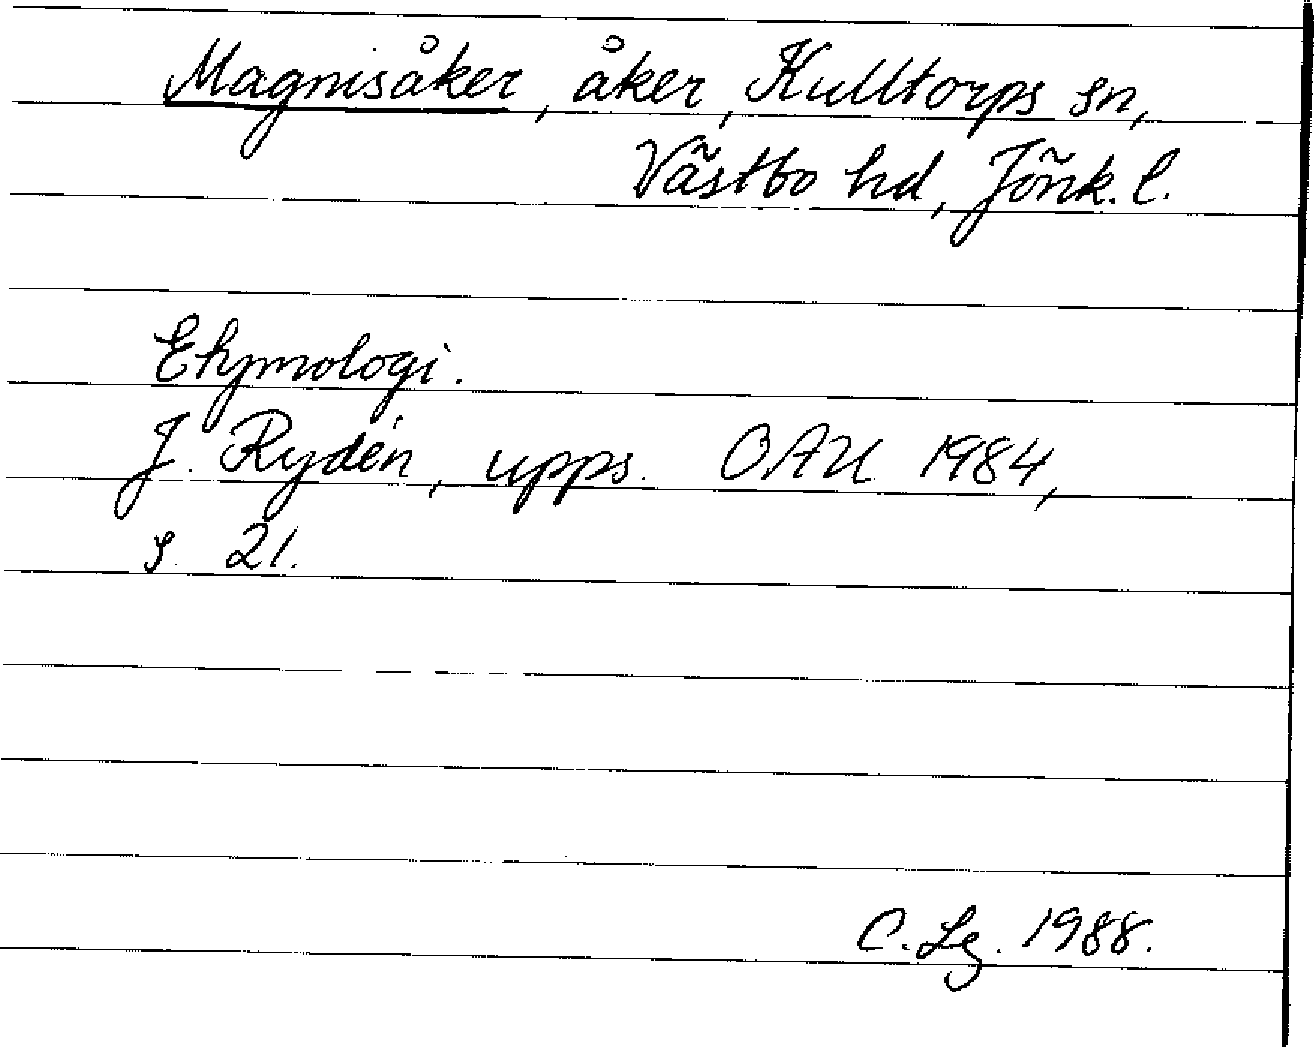 Magnisåker, åker, Kulltorps sn,
Västbo hd, Jönk. l.
Etymologi.
J. Rydén, upps. OAU 1984,
s. 21.
C. Lg. 1988.